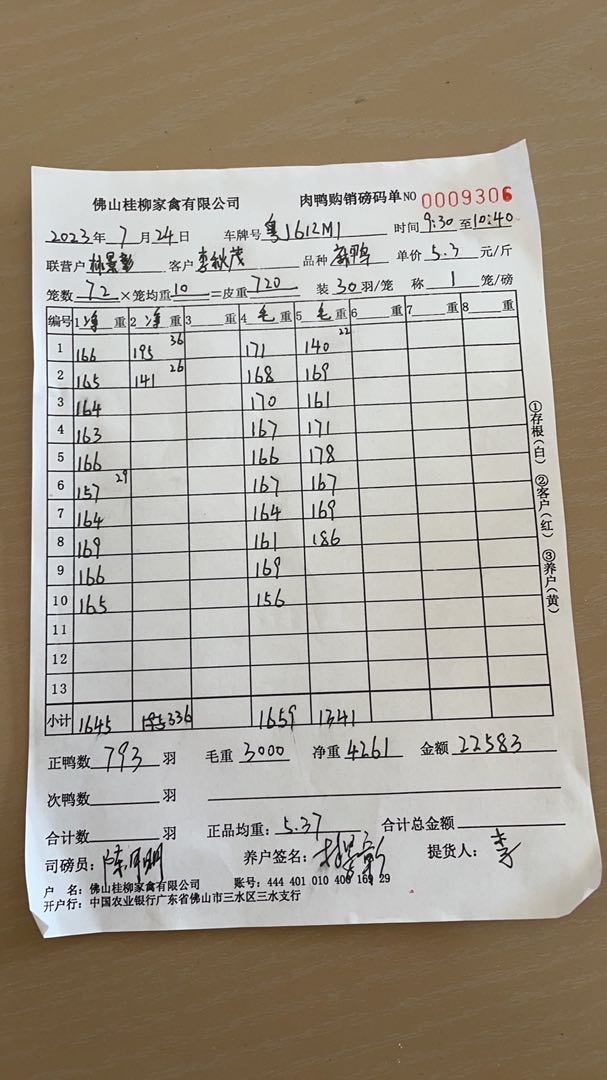 佛山桂柳家禽有限公司 肉鸭购销磅码单 NO 0009306
2023年 7月 24日 车牌号 粤J612M1 时间 9:30 至 10:40
联营户 林景彰 客户 李秋茂 品种 麻鸭 单价 5.3 元/斤
笼数 72 ×笼均重 10 =皮重 720 装 30 羽/笼 称 1 笼/磅
编号 1 净 重 2 净 重 3 重 4 毛 重 5 毛 重 6 重 7 重 8 重
1 166 195 36 171 140 22
2 165 141 26 168 169
3 164 170 161
4 163 167 171
5 166 166 178
6 157 29 167 167
7 164 164 169
8 169 161 186
9 166 169
10 165 156
11
12
13
小计 1645 336 1659 1341
正鸭数 793 羽 毛重 3000 净重 4261 金额 22583
次鸭数 羽
合计数 羽 正品均重: 5.37 合计总金额
司磅员: 养户签名: 提货人: 李
户 名: 佛山桂柳家禽有限公司 账号: 444 401 010 400 169 29
开户行: 中国农业银行广东省佛山市三水区三水支行
①存根(白) ②客户(红) ③养户(黄)